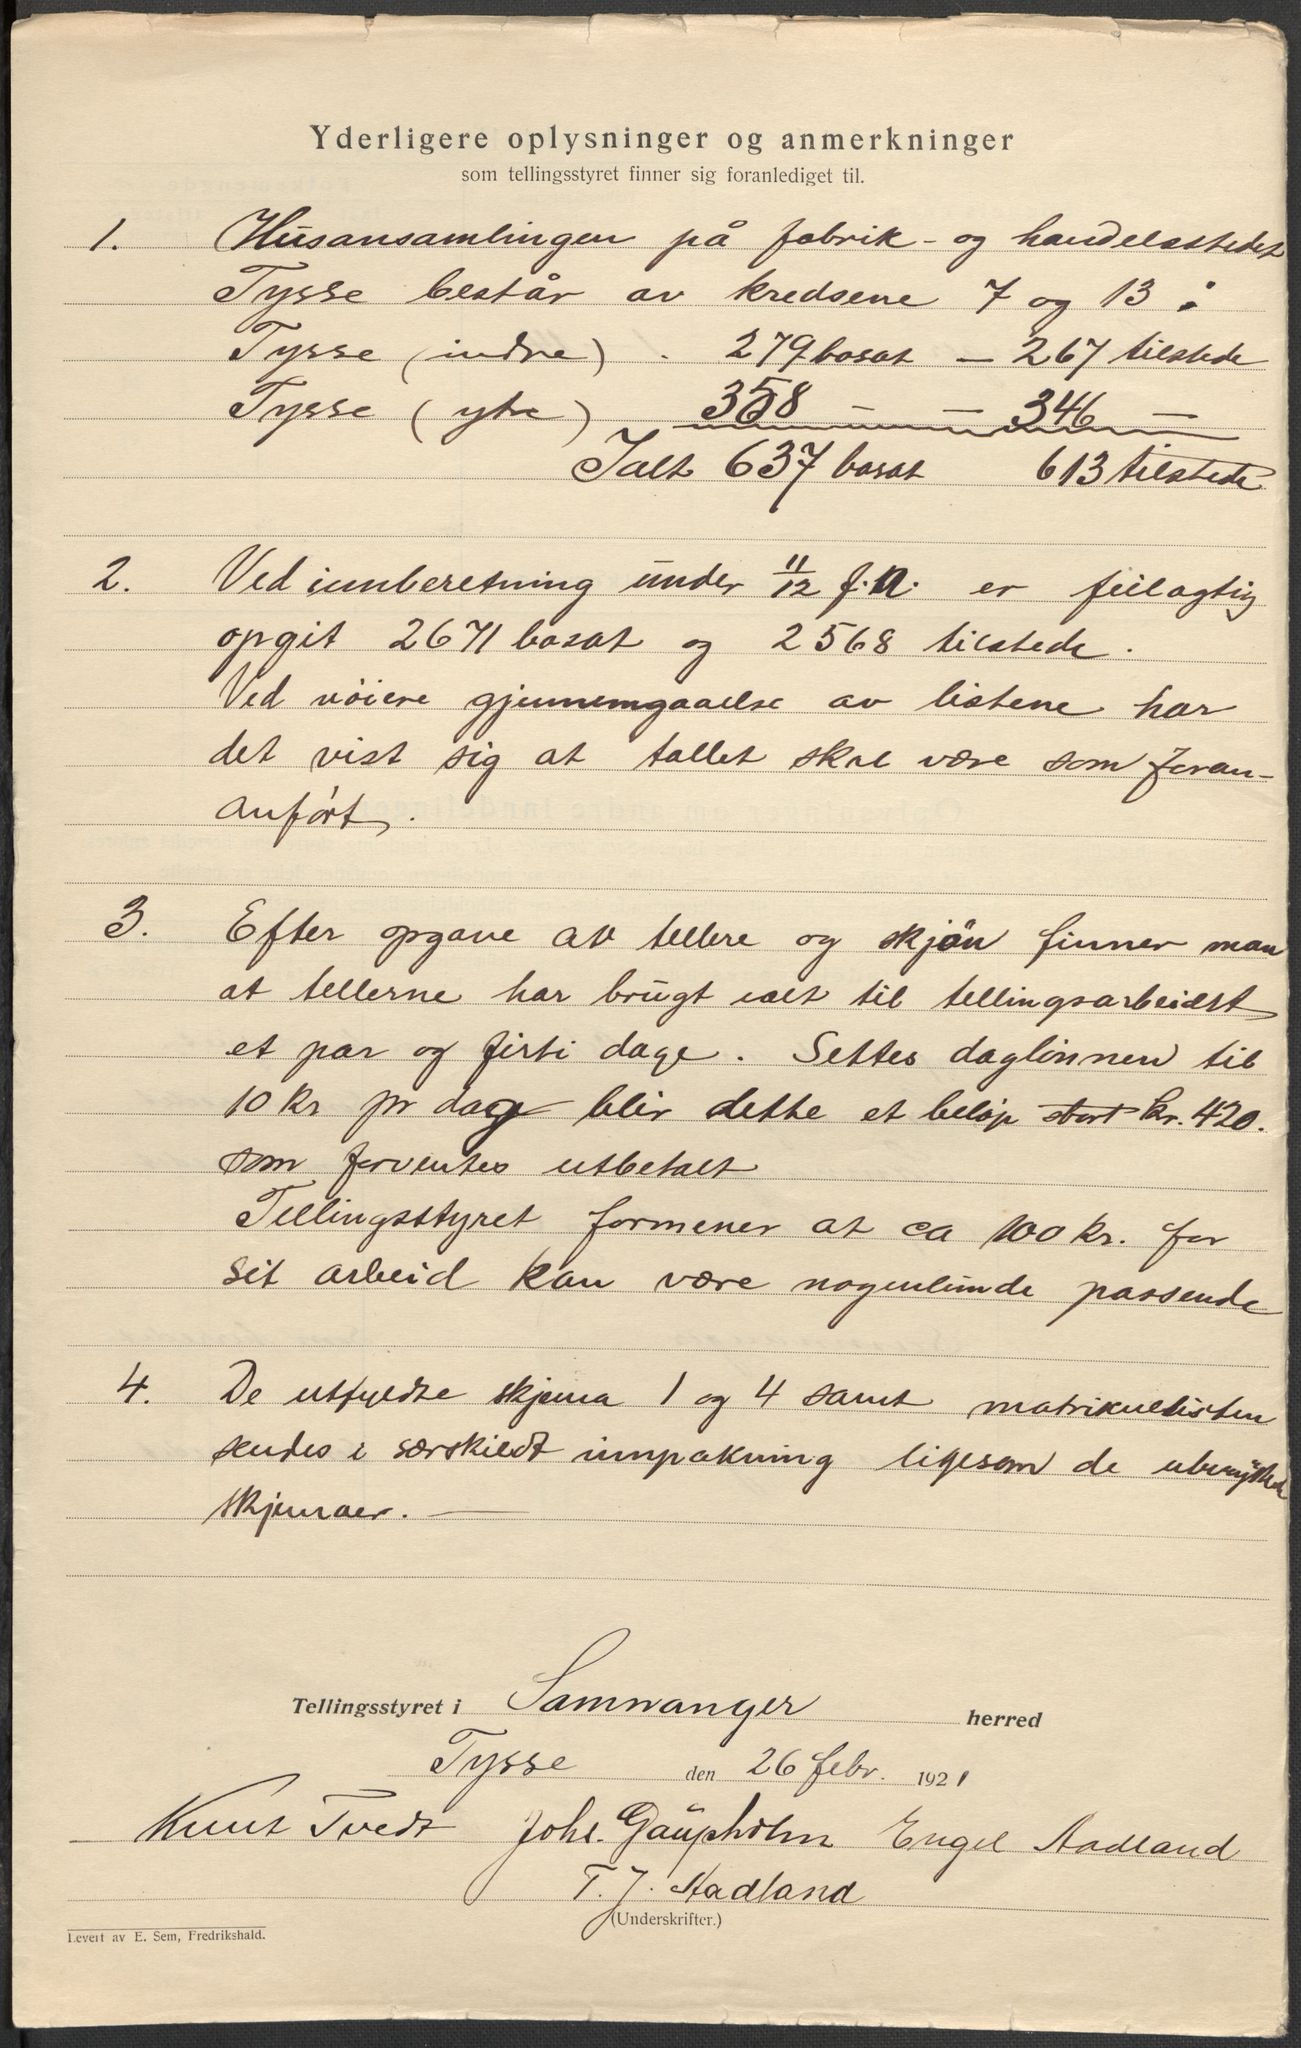 Yderligere oplysninger og anmerkninger
som tellingsstyret finner sig foranlediget til.
1. Husansamlingen på fabrik- og handelsstedet
Tysse består av kredsene 7 og 13:
Tysse (indre) . 279 bosat — 267 tilstede
Tysse (ytre) 358 — — 346 —
Ialt 637 bosat 613 tilstede
2. Ved innberetning under 11/12 f.A. er feilagtig
opgit 2671 bosat og 2568 tilstede.
Ved nöiere gjennemgaaelse av listene har
det vist sig at tallet skal være som foran-
anført.
3. Efter opgave av tellere og skjön finner man
at tellerne har brugt ialt til tellingsarbeidet
et par og firti dage. Settes daglönnen til
10 kr pr dag blir dette et beløp stort kr. 420.
som forventes utbetalt
Tellingsstyret formener at ca 100 kr. for
sit arbeid kan være nogenlunde passende
4. De utfyldte skjema 1 og 4 samt matrikullisten
sendes i særskildt innpakning likesom de ubenyttede
skjemaer. —
Tellingsstyret i Samnanger herred
Tysse den 26 febr. 1921
Knut Tvedt Johs. Gaupholm Engel Aadland
T. J. Aadland
(Underskrifter.)
Levert av E. Sem, Fredrikshald.